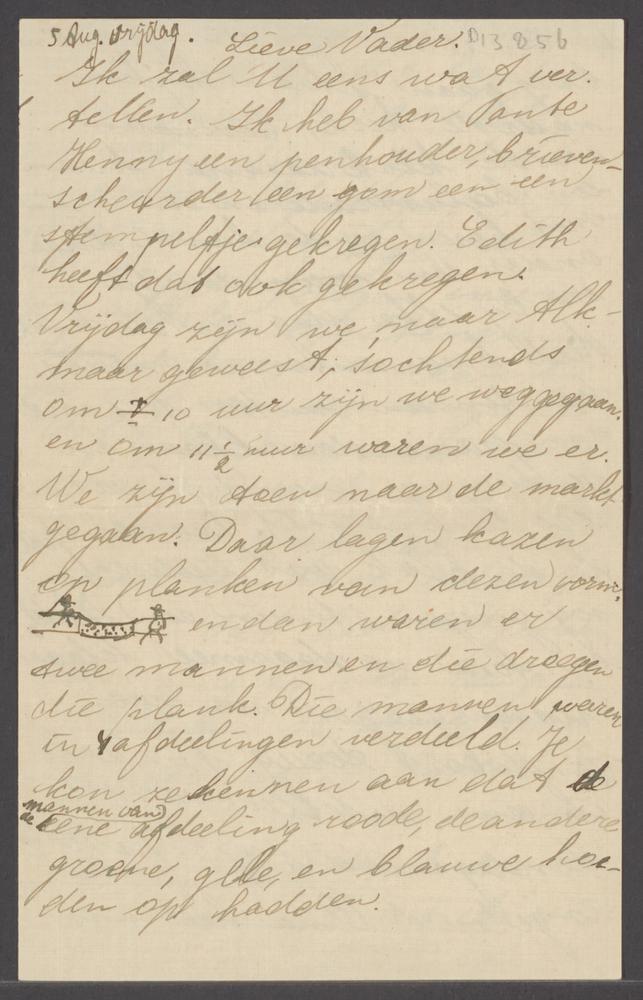 5 Aug. vrijdag. Lieve Vader. D13856
Ik zal U eens wat ver-
tellen. Ik heb van Tante
Henny een penhouder, brieven-
scheurder een gom een een
stempeltje gekregen. Edith
heeft dat ook gekregen.
Vrijdag zijn we naar Alk-
maar geweest, 'sochtends
om 10 uur zijn we weggegaan.
en om 11 1/2 uur waren we er.
We zijn toen naar de markt
gegaan. Daar lagen kazen
op planken van dezen vorm,
en dan waren er
twee mannen en die droegen
die plank. Die mannen waren
in 4 afdeelingen verdeeld. Je
kon ze kennen aan dat de
mannen van
de eene afdeeling roode, de andere
groene, gele, en blauwe hoe-
den op hadden.